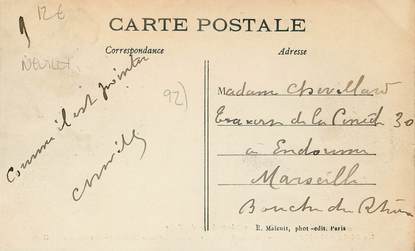 12€
CARTE POSTALE
Correspondance
Adresse
NEUILLY
92)
Comme il est
Madame Chevillard
Traverse de la 30
à Endoume
Marseille
Bouches du Rhône
R. Malcuit, phot-edit. Paris